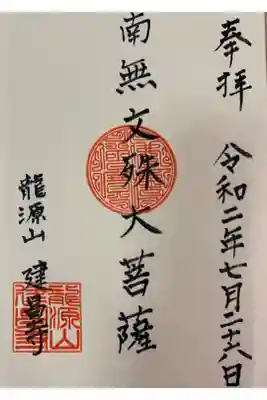 奉拝
令和二年七月二十八日
南無文殊大菩薩
龍源山 建昌寺
龍源山